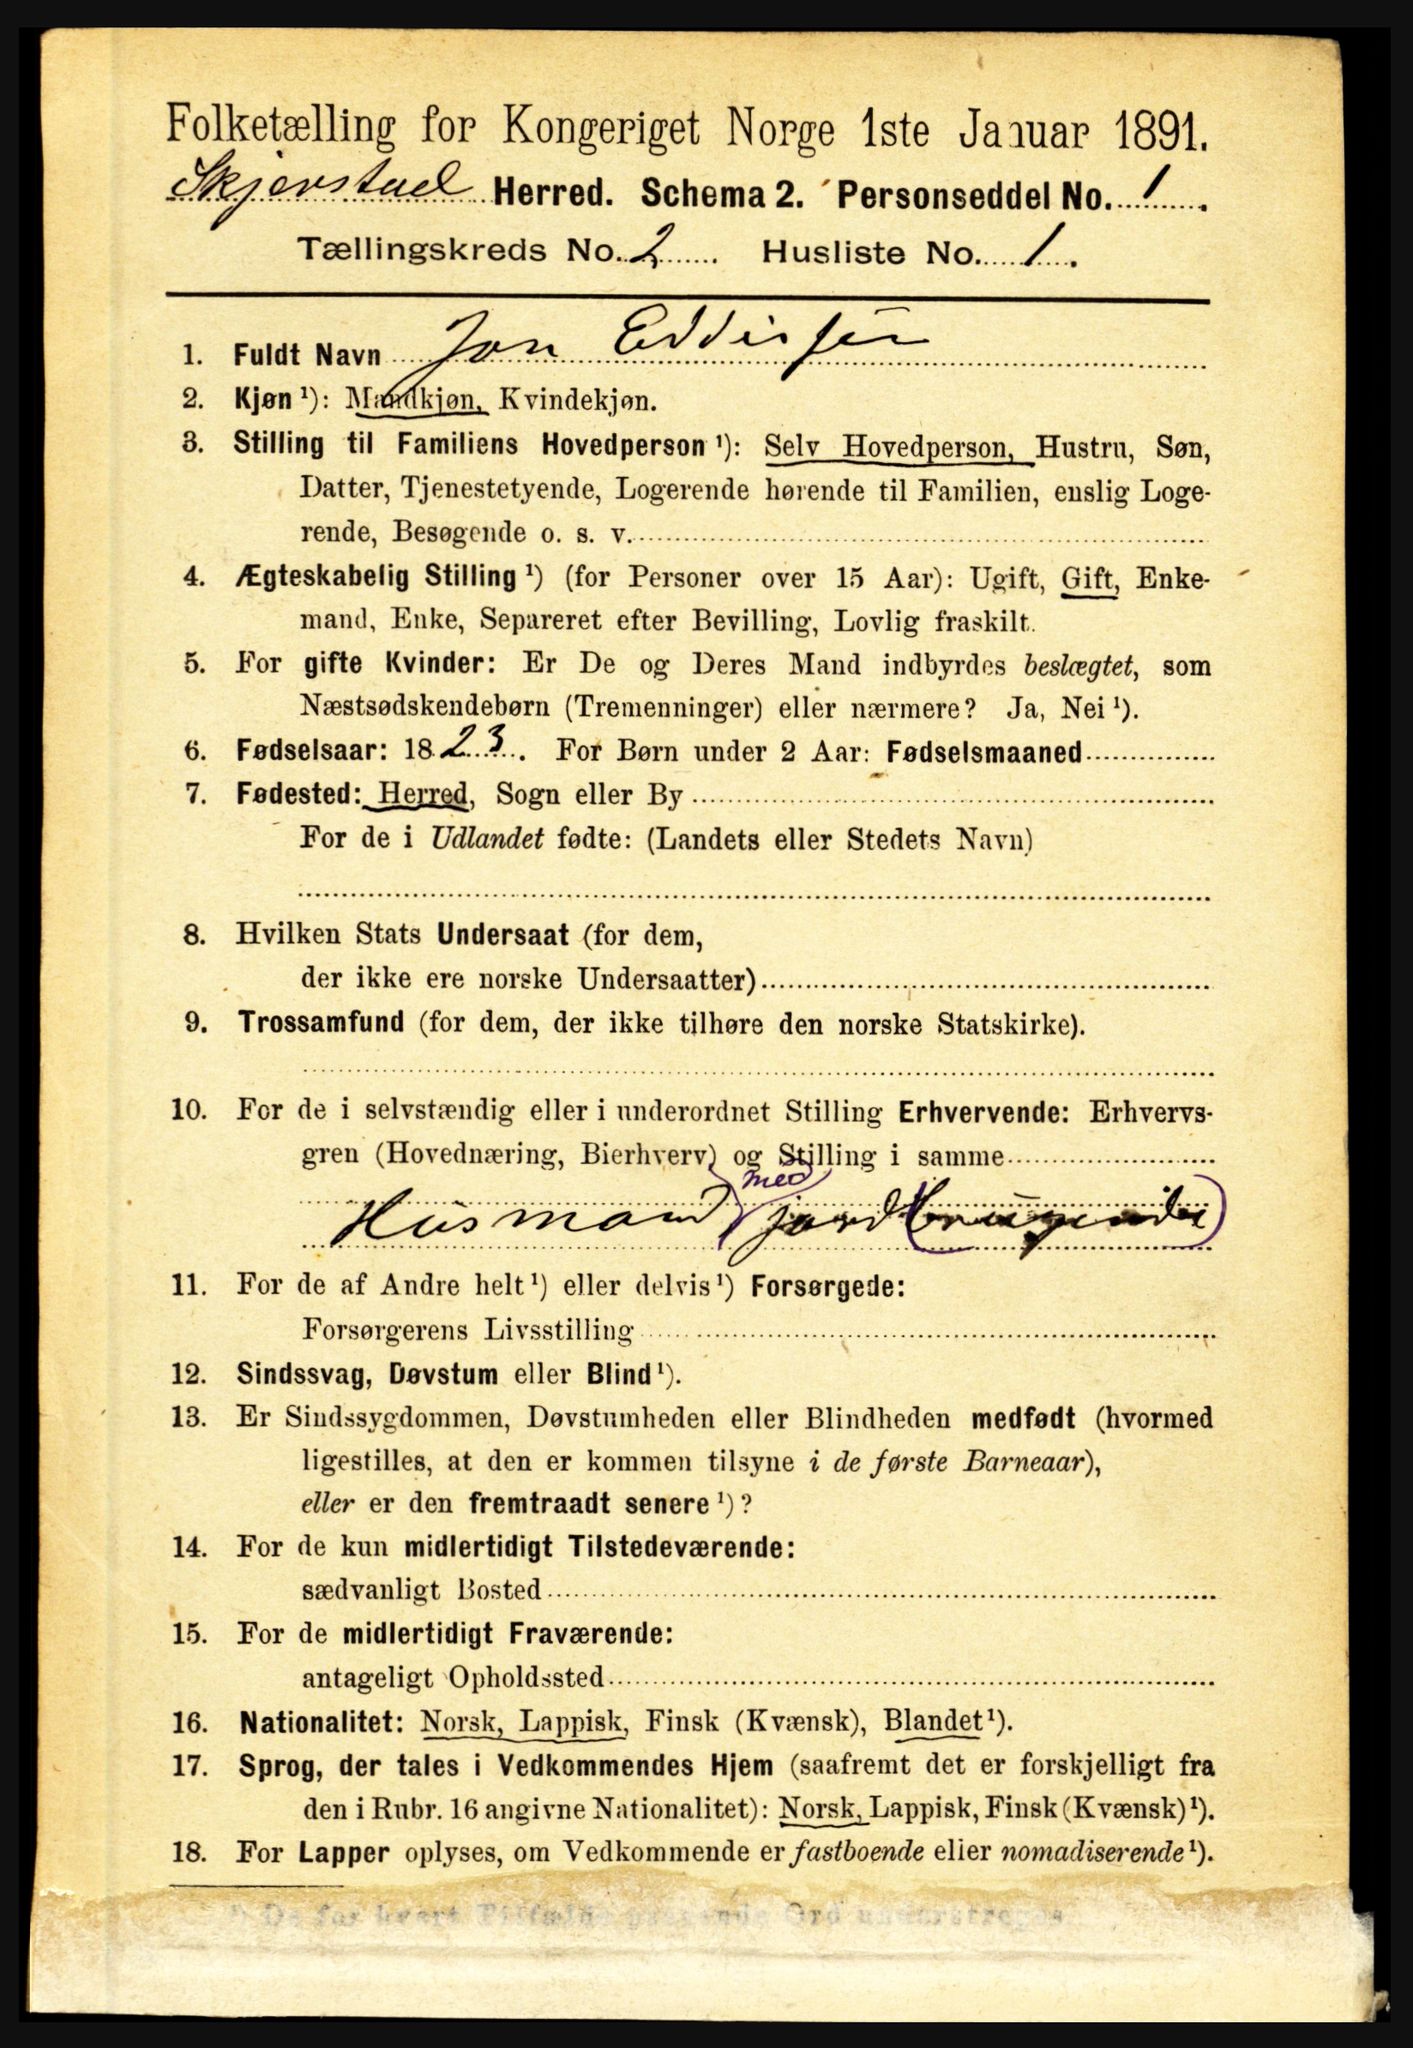 Folketælling for Kongeriget Norge 1ste Januar 1891.
Skjerstad Herred. Schema 2. Personseddel No. 1.
Tællingskreds No. 2. Husliste No. 1.
1. Fuldt Navn Jon Eddissen
2. Kjøn ¹): Mandkjøn, Kvindekjøn.
3. Stilling til Familiens Hovedperson ¹): Selv Hovedperson, Hustru, Søn,
Datter, Tjenestetyende, Logerende hørende til Familien, enslig Loge-
rende, Besøgende o. s. v.
4. Ægteskabelig Stilling ¹) (for Personer over 15 Aar): Ugift, Gift, Enke-
mand, Enke, Separeret efter Bevilling, Lovlig fraskilt.
5. For gifte Kvinder: Er De og Deres Mand indbyrdes beslægtet, som
Næstsødskendebørn (Tremenninger) eller nærmere? Ja, Nei ¹).
6. Fødselsaar: 1823. For Børn under 2 Aar: Fødselsmaaned
7. Fødested: Herred, Sogn eller By
For de i Udlandet fødte: (Landets eller Stedets Navn)
8. Hvilken Stats Undersaat (for dem,
der ikke ere norske Undersaatter)
9. Trossamfund (for dem, der ikke tilhøre den norske Statskirke).
10. For de i selvstændig eller i underordnet Stilling Erhvervende: Erhvervs-
gren (Hovednæring, Bierhverv) og Stilling i samme
med
Husmand jord(brugende)
11. For de af Andre helt ¹) eller delvis ¹) Forsørgede:
Forsørgerens Livsstilling
12. Sindssvag, Døvstum eller Blind ¹).
13. Er Sindssygdommen, Døvstumheden eller Blindheden medfødt (hvormed
ligestilles, at den er kommen tilsyne i de første Barneaar),
eller er den fremtraadt senere ¹)?
14. For de kun midlertidigt Tilstedeværende:
sædvanligt Bosted
15. For de midlertidigt Fraværende:
antageligt Opholdssted
16. Nationalitet: Norsk, Lappisk, Finsk (Kvænsk), Blandet ¹).
17. Sprog, der tales i Vedkommendes Hjem (saafremt det er forskjelligt fra
den i Rubr. 16 angivne Nationalitet): Norsk, Lappisk, Finsk (Kvænsk) ¹).
18. For Lapper oplyses, om Vedkommende er fastboende eller nomadiserende ¹).
¹) De for hvert Tilfælde passende Ord understreges.